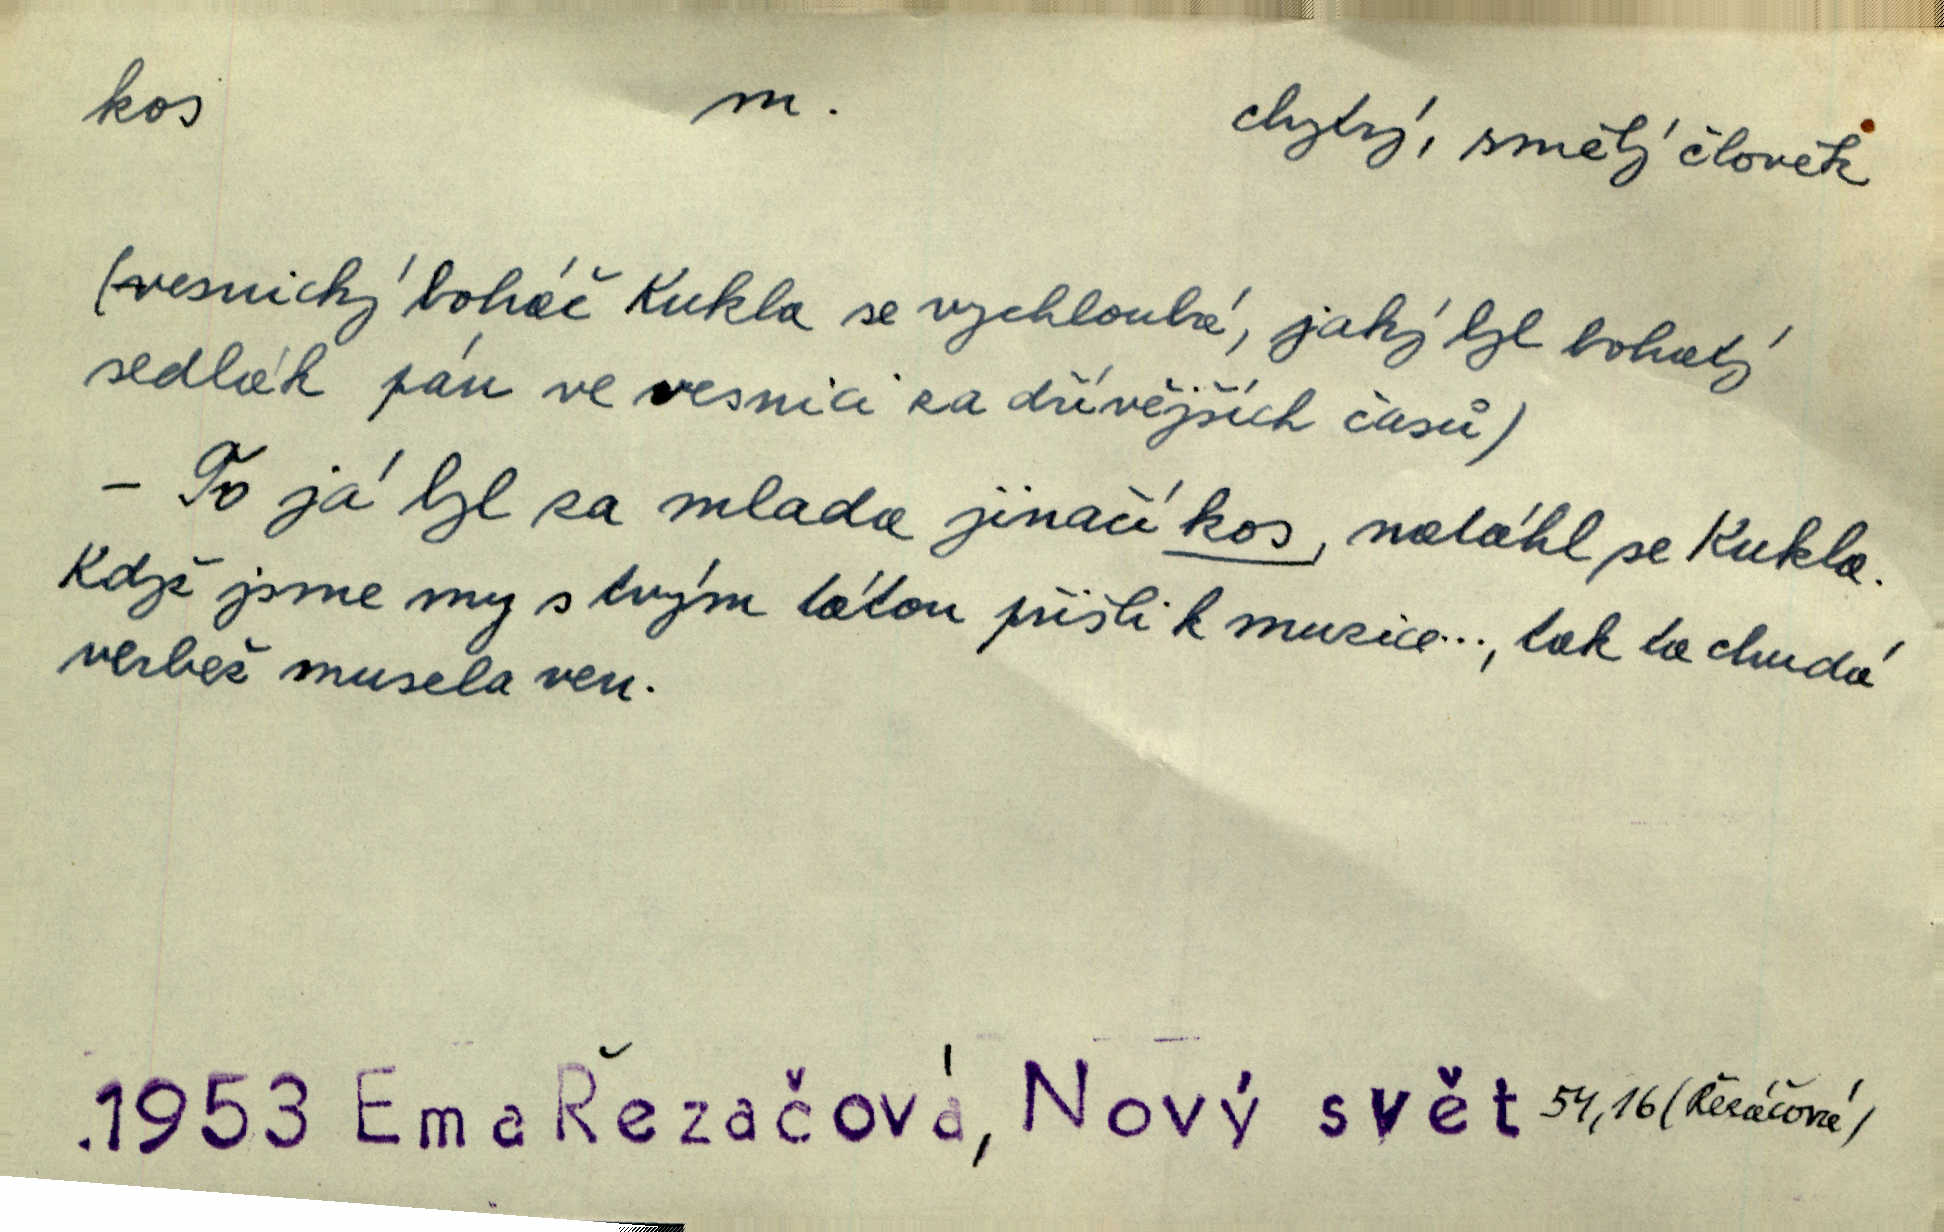 kos m. chytrý, smělý člověk
(vesnický boháč Kukla se vychloubá, jaký byl bohatý
sedlák pán ve vesnici za dřívějších časů)
– To já byl za mlada jinačí kos, natáhl se Kukla.
Když jsme my s tvým tátou přišli k muzice..., tak ta chudá
verbež musela ven.
.1953 Ema Řezačová, Nový svět 54,16 (Řezáčová)